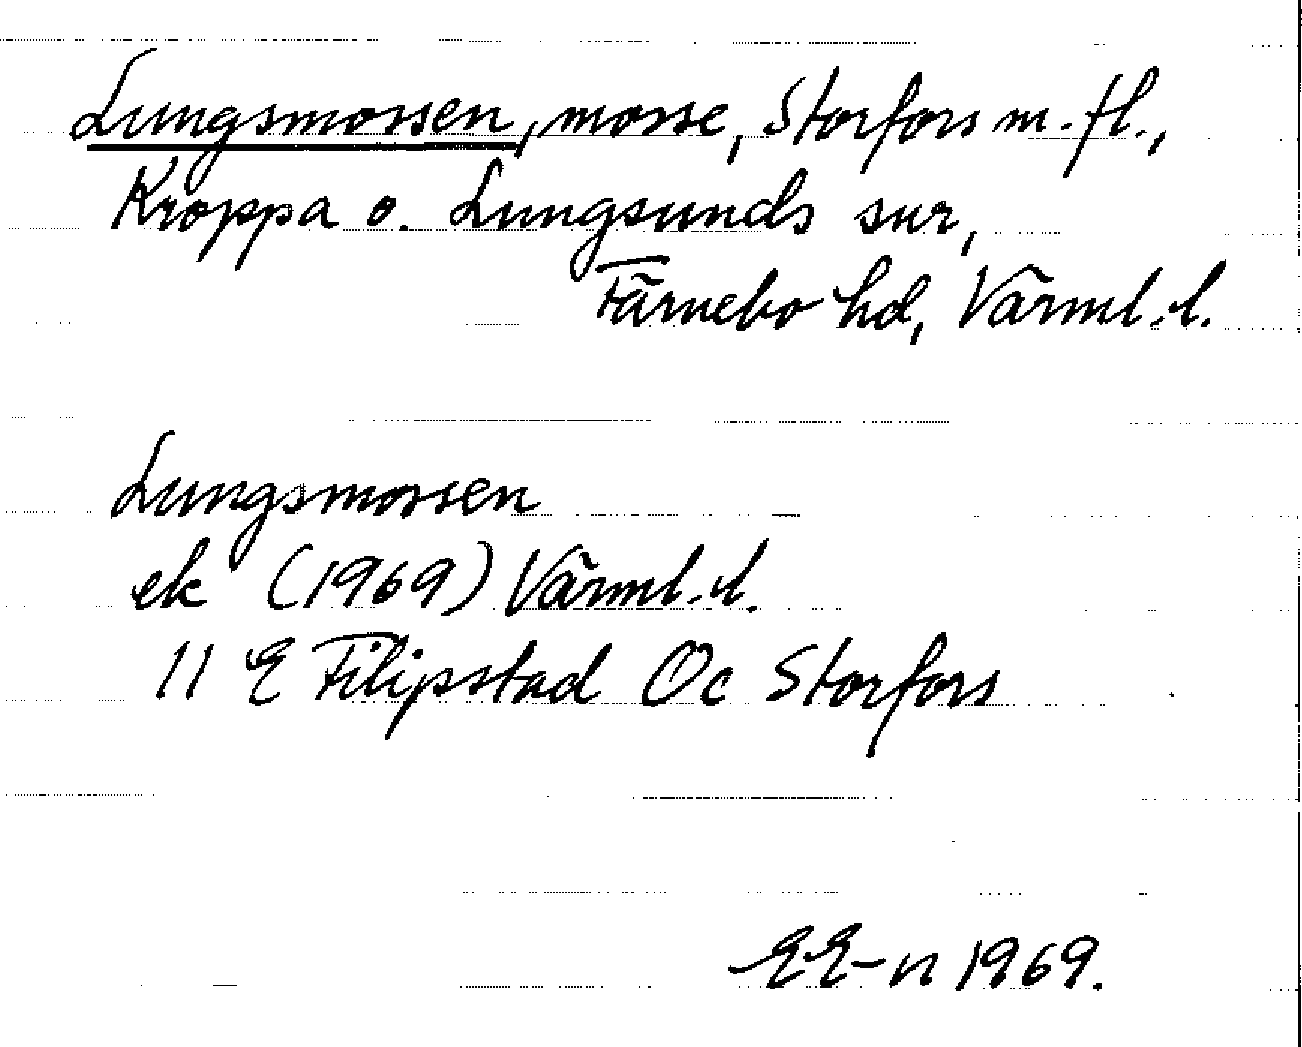 Lungsmossen, mosse, Storfors m. fl.,
Kroppa o. Lungsunds snr,
Färnebo hd, Värml. l.
Lungsmossen
ek (1969) Värml. l.
11 E Filipstad Oc Storfors
EE-n 1969.